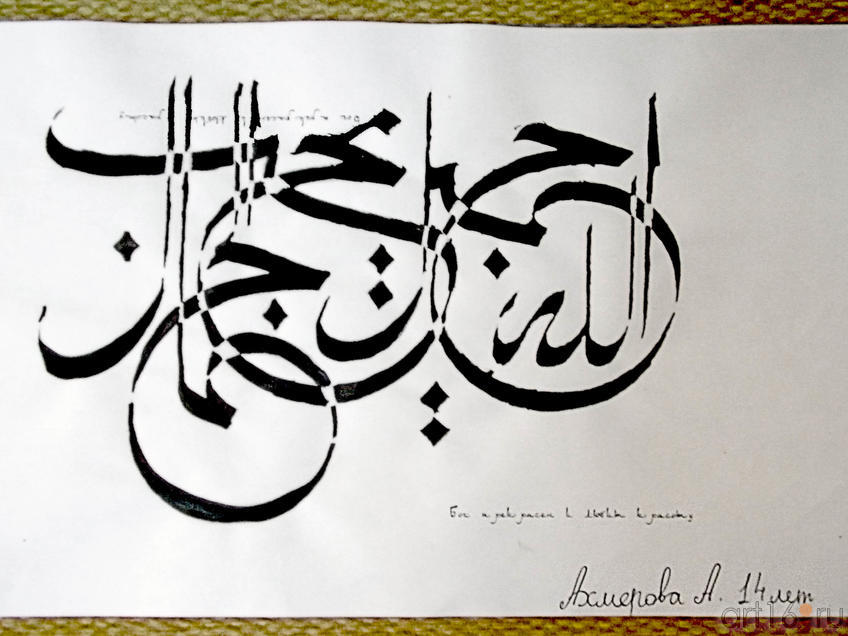 الله جميل يحب الجمال
Бог прекрасен и любит красоту
Ахмерова А. 14 лет
art16.ru